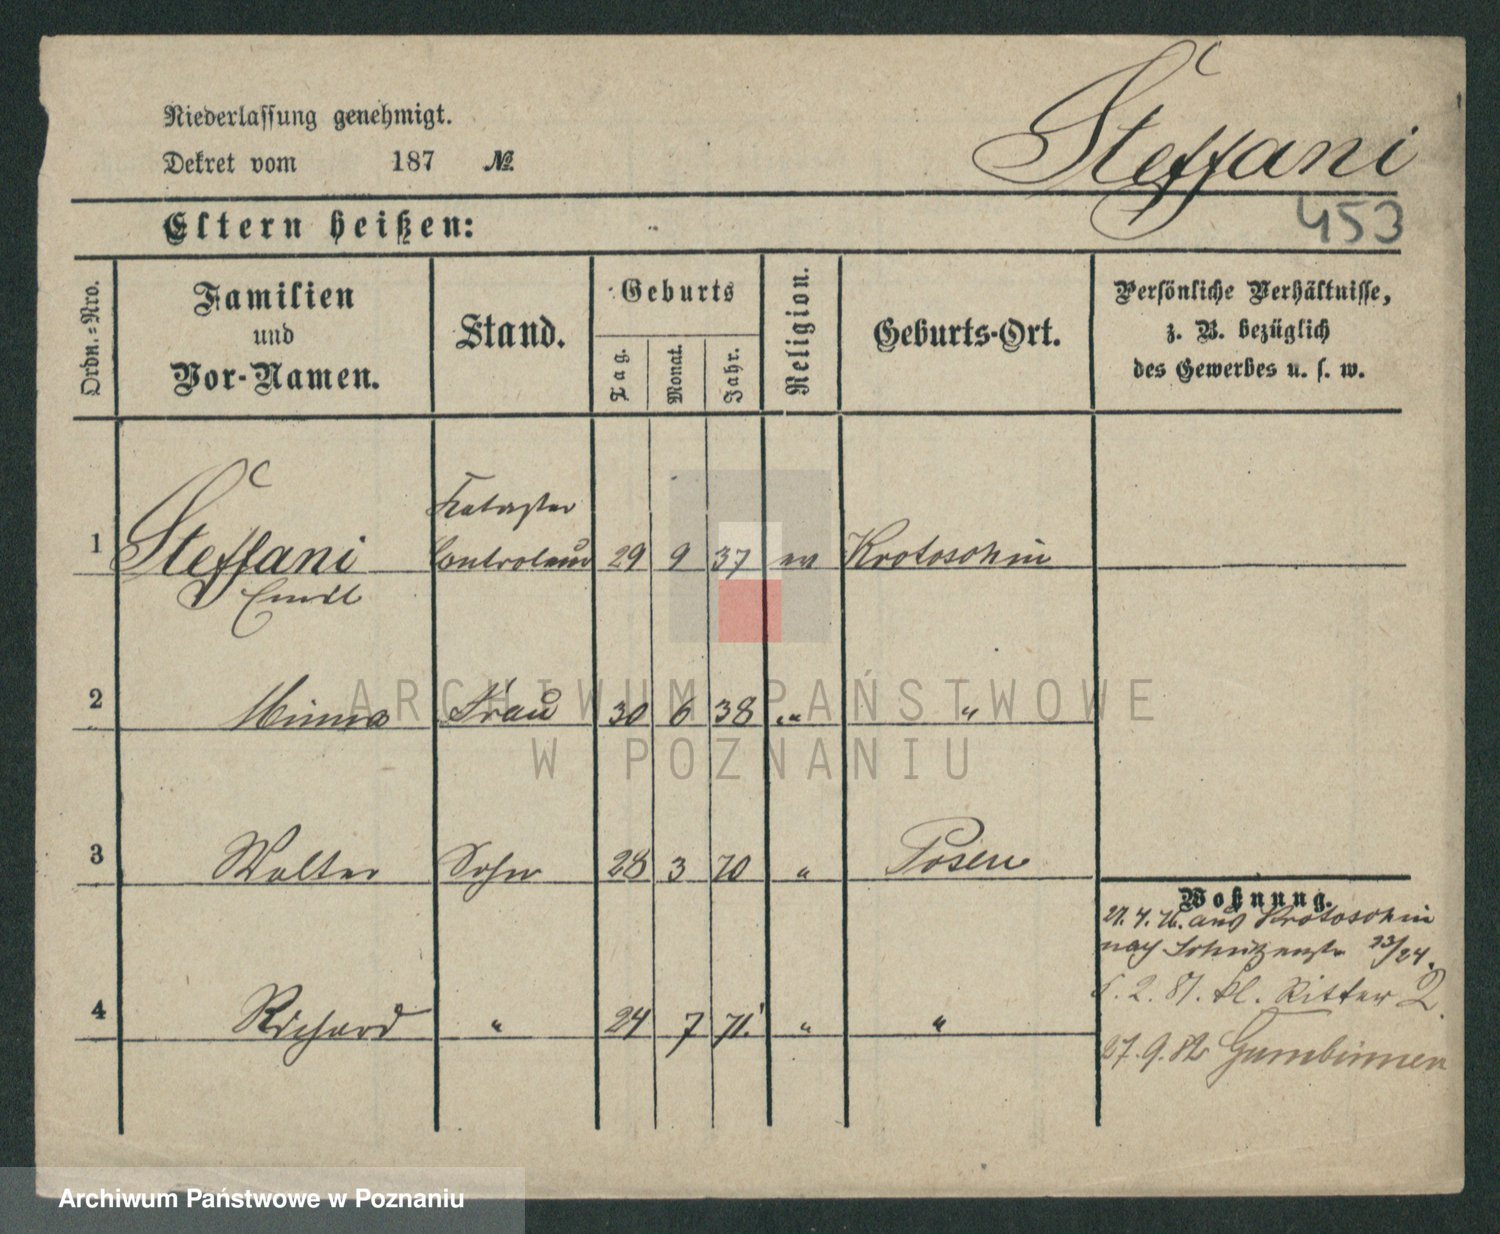 Niederlassung genehmigt.
Dekret vom 187 №
Steffani
453
Eltern heißen:
Ordn.=Nro.
Familien
und
Vor-Namen.
Stand.
Geburts
Tag.
Monat.
Jahr.
Religion.
Geburts-Ort.
Persönliche Verhältnisse,
z. B. bezüglich
des Gewerbes u. s. w.
Kataster
1 Steffani Controleur 29 9 37 ev Krotoschin
Emil
2 Minna Frau 30 6 38 " "
3 Walter Sohn 28 3 70 " Posen
4 Richard " 24 7 71. " "
Wohnung.
27. 4. 76. aus Krotoschin
nach Schützenstr 23/24.
2. 81. Kl. Ritter 2.
27. 9. 82 Gumbinnen
ARCHIWUM PAŃSTWOWE
W POZNANIU
Archiwum Państwowe w Poznaniu